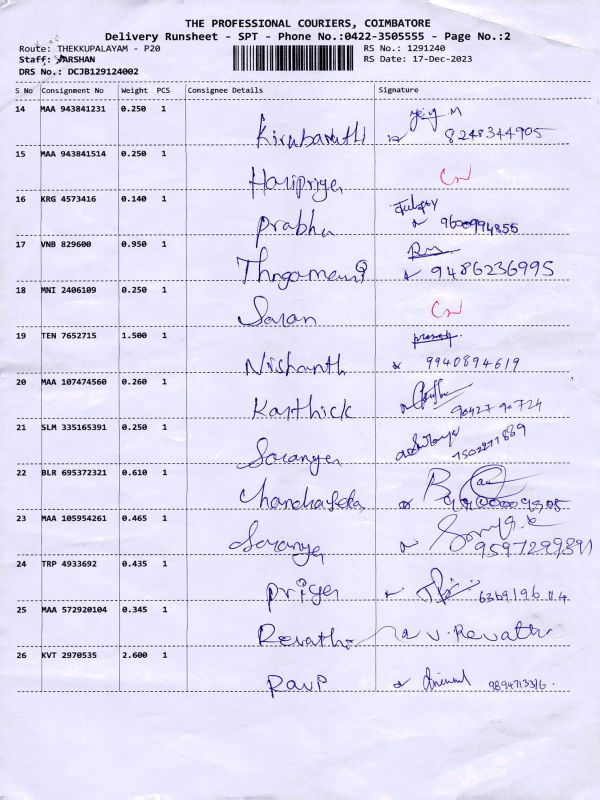 THE PROFESSIONAL COURIERS, COIMBATORE
Delivery Runsheet - SPT - Phone No.:0422-3505555 - Page No.:2
Route: THEKKUPALAYAM - P20 RS No.: 1291240
Staff: ARSHAN RS Date: 17-Dec-2023
DRS No.: DCJB129124002
S No Consignment No Weight PCS Consignee Details Signature
14 MAA 943841231 0.250 1
Kirubarathi 8248344905
15 MAA 943841514 0.250 1
Haripriya
16 KRG 4573416 0.140 1
Prabhu 9600994855
17 VNB 829600 0.950 1
Thngamani 9486236995
18 MNI 2406109 0.250 1
Saran
19 TEN 7652715 1.500 1
Nishanth 9940894619
20 MAA 107474560 0.260 1
Karthick 90427 90724
21 SLM 335165391 0.250 1
Saranya 7502277889
22 BLR 695372321 0.610 1
Chandraseka
23 MAA 105954261 0.465 1
Saranya 9597299391
24 TRP 4933692 0.435 1
Priya
25 MAA 572920104 0.345 1
Revathi V. Revathi
26 KVT 2970535 2.600 1
Ravi 9894713316